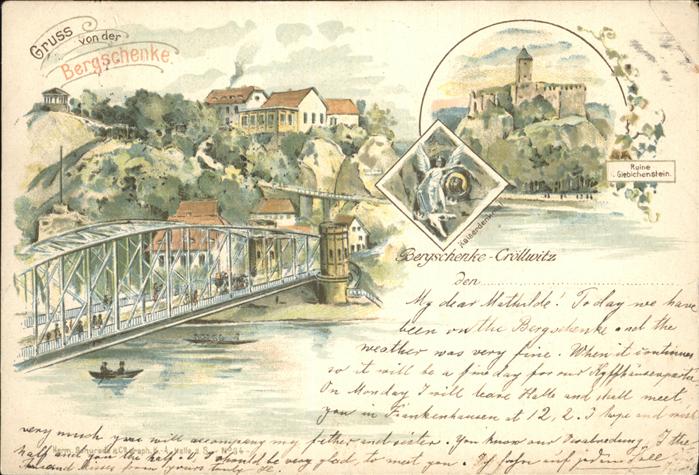 Gruss von der
Bergschenke.
Ruine
Giebichenstein.
Kaiserdenkm.
Bergschenke-Cröllwitz
den
My dear Mathilde! To day we have
been on the Bergschenke and the
weather was very fine. When it continues
so it will be a fine day for our Kyffhäuserpartie
On Monday I will leave Halle and shall meet
you in Frankenhausen at 12, 2. I hope and wish
very much you will accompany my father and sister. You know our
half and you the half. I should be very glad, to meet you. Ich fahre auf jeden Fall
Thousand kisses from yours truly